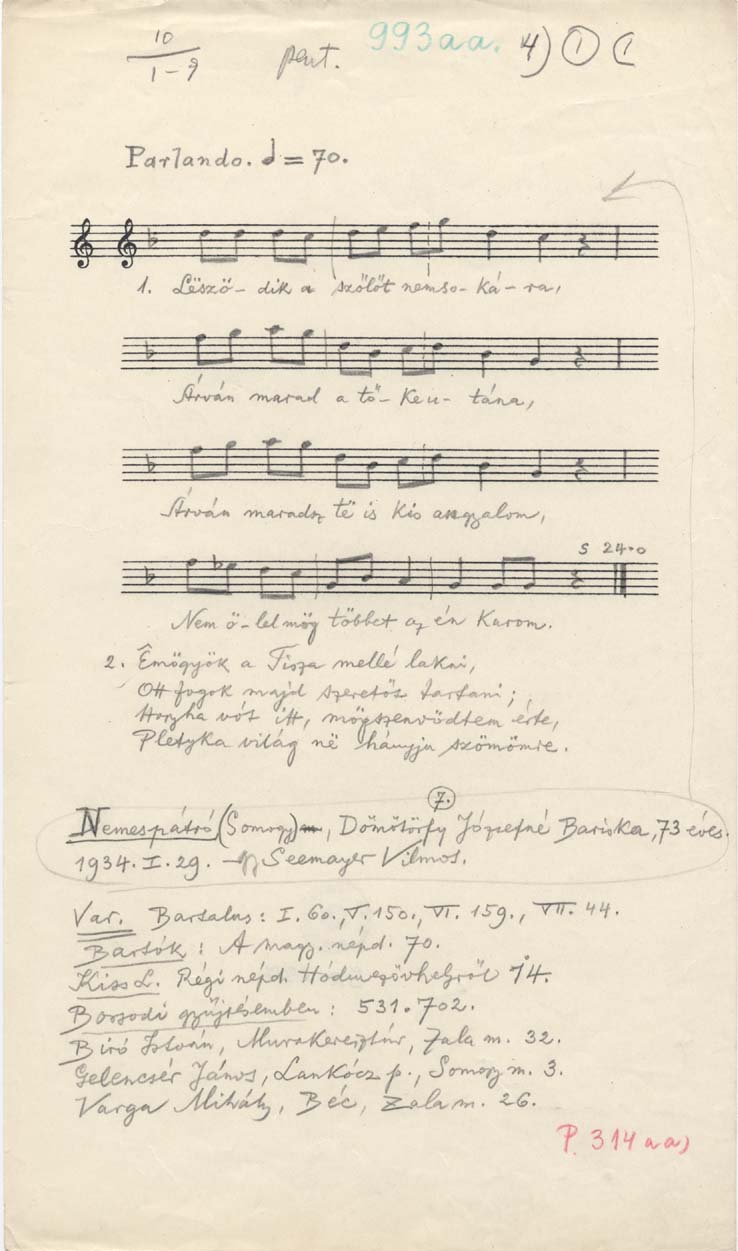 10
1-9
pent.
993aa.
4) ① (
Parlando. = 70.
1. Lëszö- dik a szőlőt nemso- ká- ra,
Árván marad a tő- ke u- tána,
Árván maradsz të is kis angyalom,
S 24.0
Nem ö- lel mög többet az én karom.
2. Êmögyök a Tisza mellé lakni,
Ott fogok majd szeretőt tartani;
Horgha vót itt, mögszenvödtem érte,
Pletyka világ në hányja szömömre.
7.
Nemespátró (Somogy), Dömötörfy Józsefné Bariska, 73 éves.
1934. I. 29. Seemayer Vilmos.
Var. Bartalus: I. 60., V. 150., VI. 159., VII. 44.
Bartók: A magy. népd. 70.
Kiss L. Régi népd. Hódmezővhelyről 14.
Borsodi gyűjtésemben: 531. 702.
Biró István, Murakeresztúr, Zala m. 32.
Gelencsér János, Lankócz p., Somogy m. 3.
Varga Mihály, Béc, Zala m. 26.
P. 314 aa)